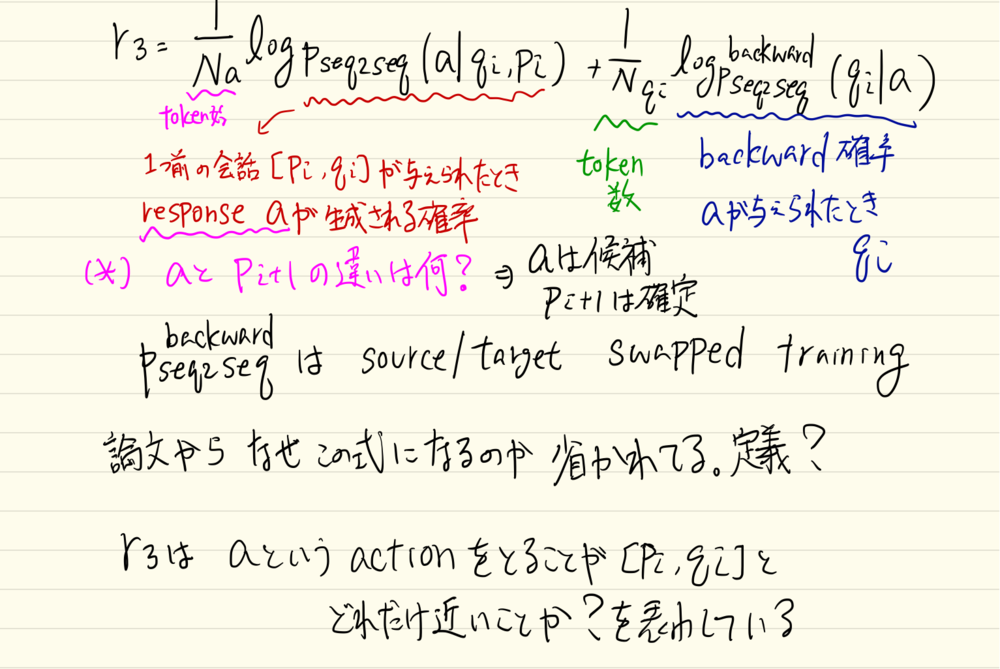 r3 = 1/Na log pseq2seq (a|qi, pi) + 1/Nqi log p backward seq2seq (qi|a)
token数
1つ前の会話 [pi, qi] が与えられたとき
response aが生成される確率
token
数
backward 確率
aが与えられたとき
qi
(*) aと pi+1 の違いは何? ⇒ aは候補
pi+1は確定
p backward seq2seq は source/target swapped training
論文からなぜこの式になるのか省かれてる。定義?
r3は aという actionをとることが [pi, qi] と
どれだけ近いことか?を表わしている